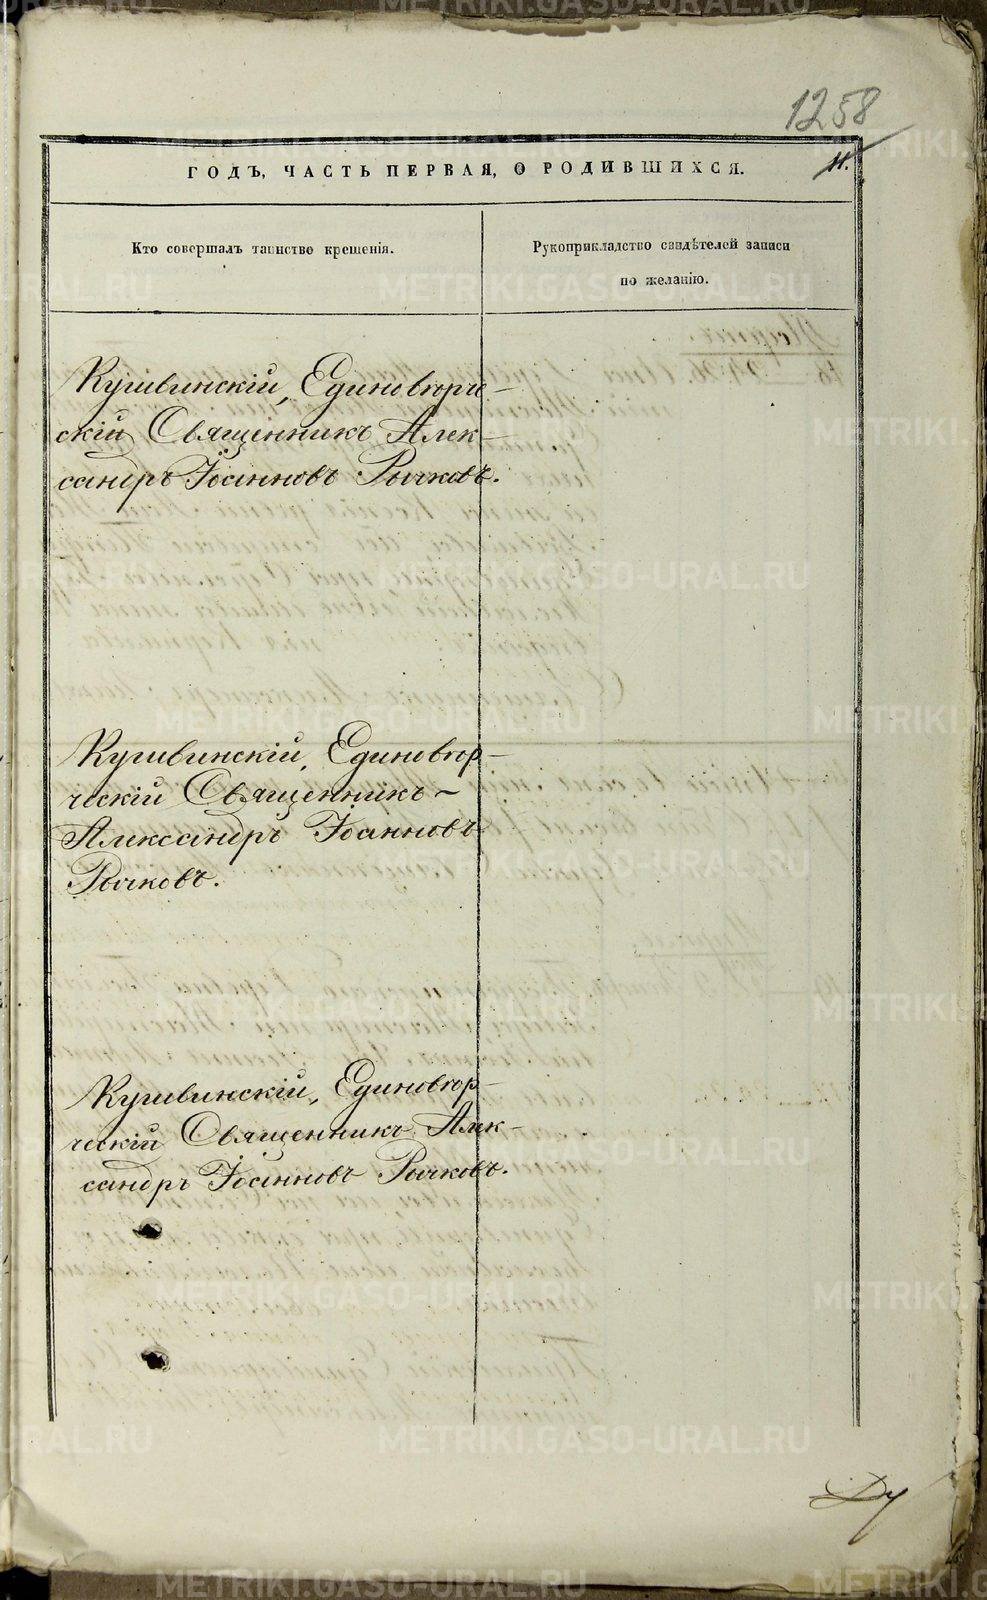 1258
11.
ГОДЪ, ЧАСТЬ ПЕРВАЯ, О РОДИВШИХСЯ.
Кто совершалъ таинство крещенія.
Рукоприкладство свидѣтелей записи
по желанію.
Кушвинскій, Единовѣрче-
скій Священникъ Алек-
сандръ Іоанновъ Рычковъ.
Кушвинскій, Единовѣр-
ческій Священникъ
Александръ Іоанновъ
Рычковъ.
Кушвинскій, Единовѣр-
ческій Священникъ Алек-
сандръ Іоанновъ Рычковъ.
METRIKI.GASO-URAL.RU